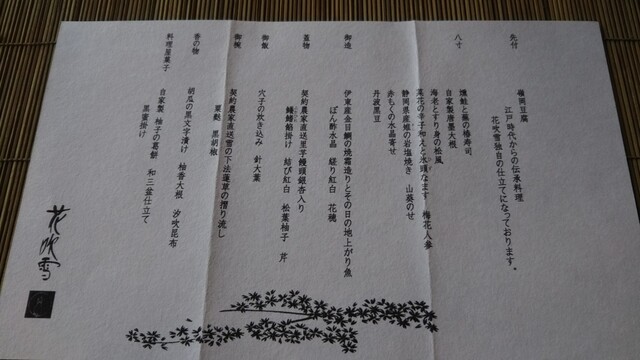 先付
嶺岡豆腐
江戸時代からの伝承料理
花吹雪独自の仕立てになっております。
八寸
燻鮭と蕪の椿寿司
自家製唐墨大根
海老とすり身の松風
菜花の辛子和えと氷頭なます 梅花人参
静岡県産娘の岩塩焼き 山葵のせ
赤もくの水晶寄せ
丹波黒豆
御造
伊東産金目鯛の焼霜造りとその日の地上がり魚
ぽん酢水晶 縒り紅白 花穂
蓋物
契約農家直送里芋饅頭銀杏入り
鱶鰭餡掛け 結び紅白 松葉柚子 芹
御飯
穴子の炊き込み 針大葉
御椀
契約農家直送雪の下法蓮草の摺り流し
粟麩 黒胡椒
香の物
胡瓜の黒文字漬け 柚香大根 汐吹昆布
料理屋菓子
自家製 柚子の葛餅 和三盆仕立て
黒蜜掛け
花吹雪